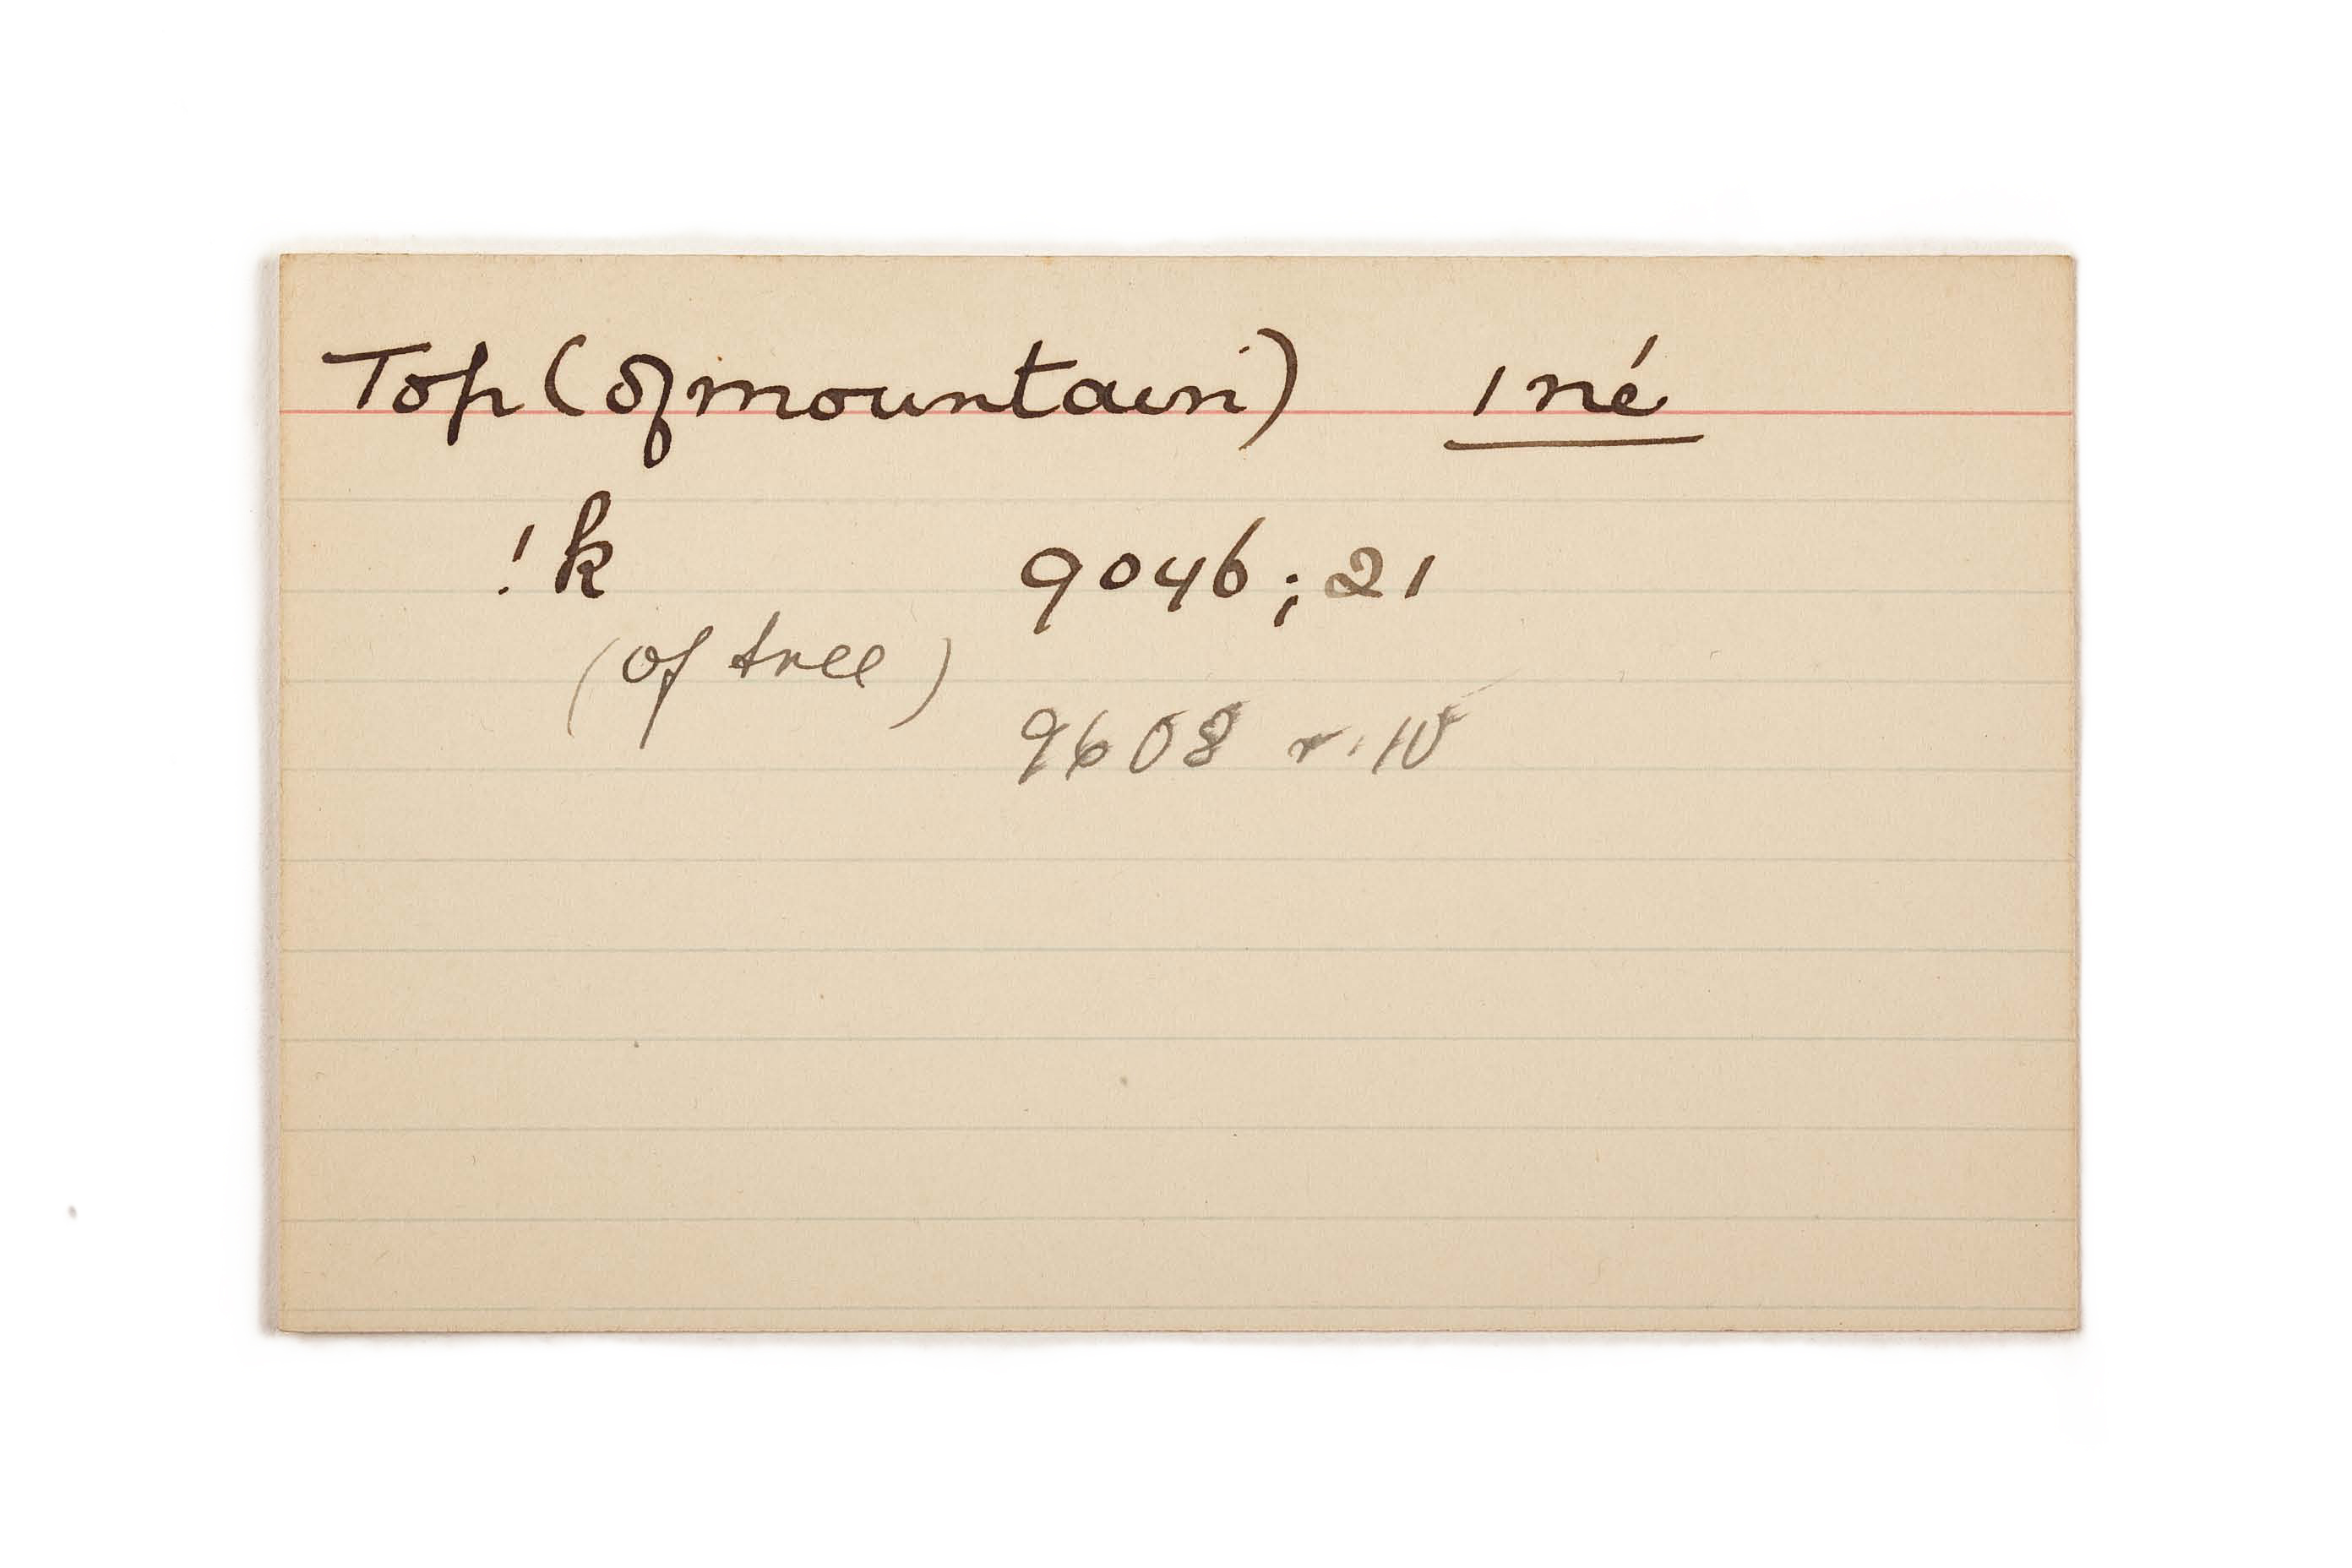 Top (of mountain) ǀné
!k 9046; 21
(of tree)
9608 r. 10